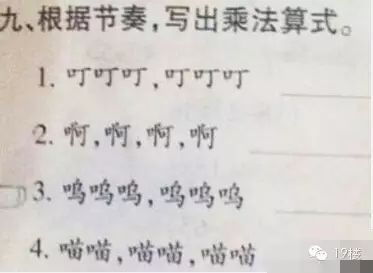 九、根据节奏，写出乘法算式。
1. 叮叮叮，叮叮叮
2. 啊，啊，啊，啊
3. 呜呜呜，呜呜呜
4. 喵喵，喵喵，喵喵
19楼